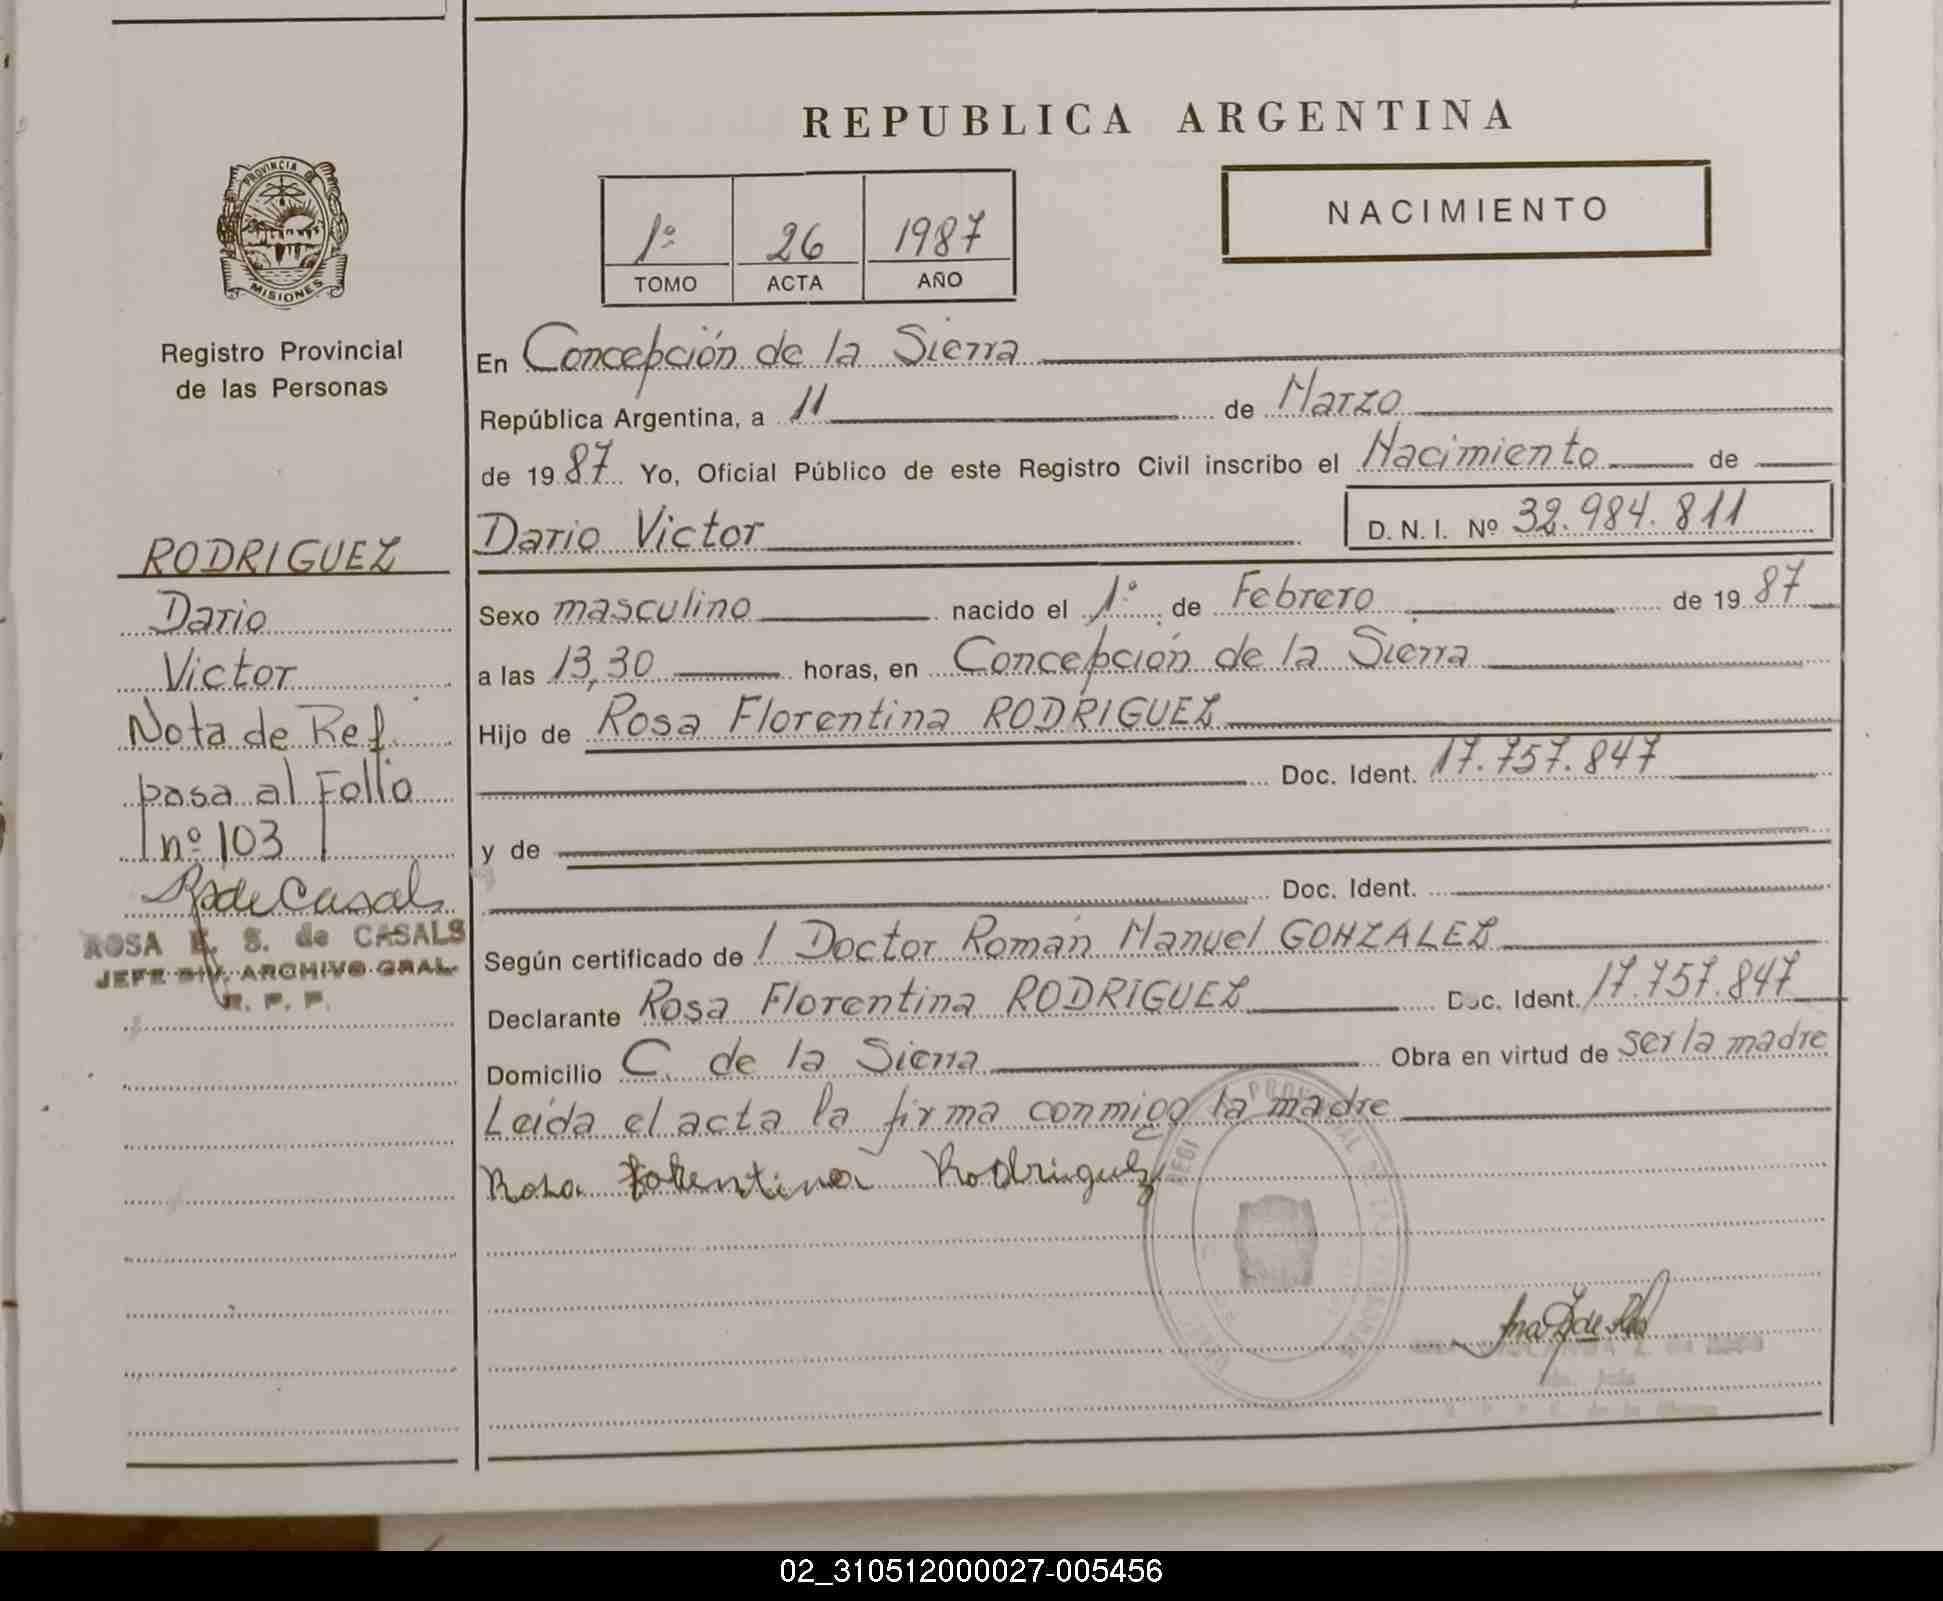 REPUBLICA ARGENTINA
PROVINCIA DE
MISIONES
Registro Provincial
de las Personas
1º 26 1987
TOMO ACTA AÑO
NACIMIENTO
RODRIGUEZ
Dario
Victor
Nota de Ref.
pasa al Folio
nº 103
RS de Casals
ROSA E. S. de CASALS
JEFE DIV. ARCHIVO GRAL.
R. P. P.
En Concepción de la Sierra
República Argentina, a 11 de Marzo
de 1987 Yo, Oficial Público de este Registro Civil inscribo el Nacimiento de
Dario Victor D. N. I. Nº 32.984.811
Sexo masculino nacido el 1º de Febrero de 1987
a las 13,30 horas, en Concepción de la Sierra
Hijo de Rosa Florentina RODRIGUEZ
Doc. Ident. 17.757.847
y de
Doc. Ident.
Según certificado de / Doctor Román Manuel GONZALEZ
Declarante Rosa Florentina RODRIGUEZ Doc. Ident. 17.757.847
Domicilio C. de la Sierra Obra en virtud de ser la madre
Leída el acta la firma conmigo la madre
Rosa Florentina Rodriguez
02_310512000027-005456